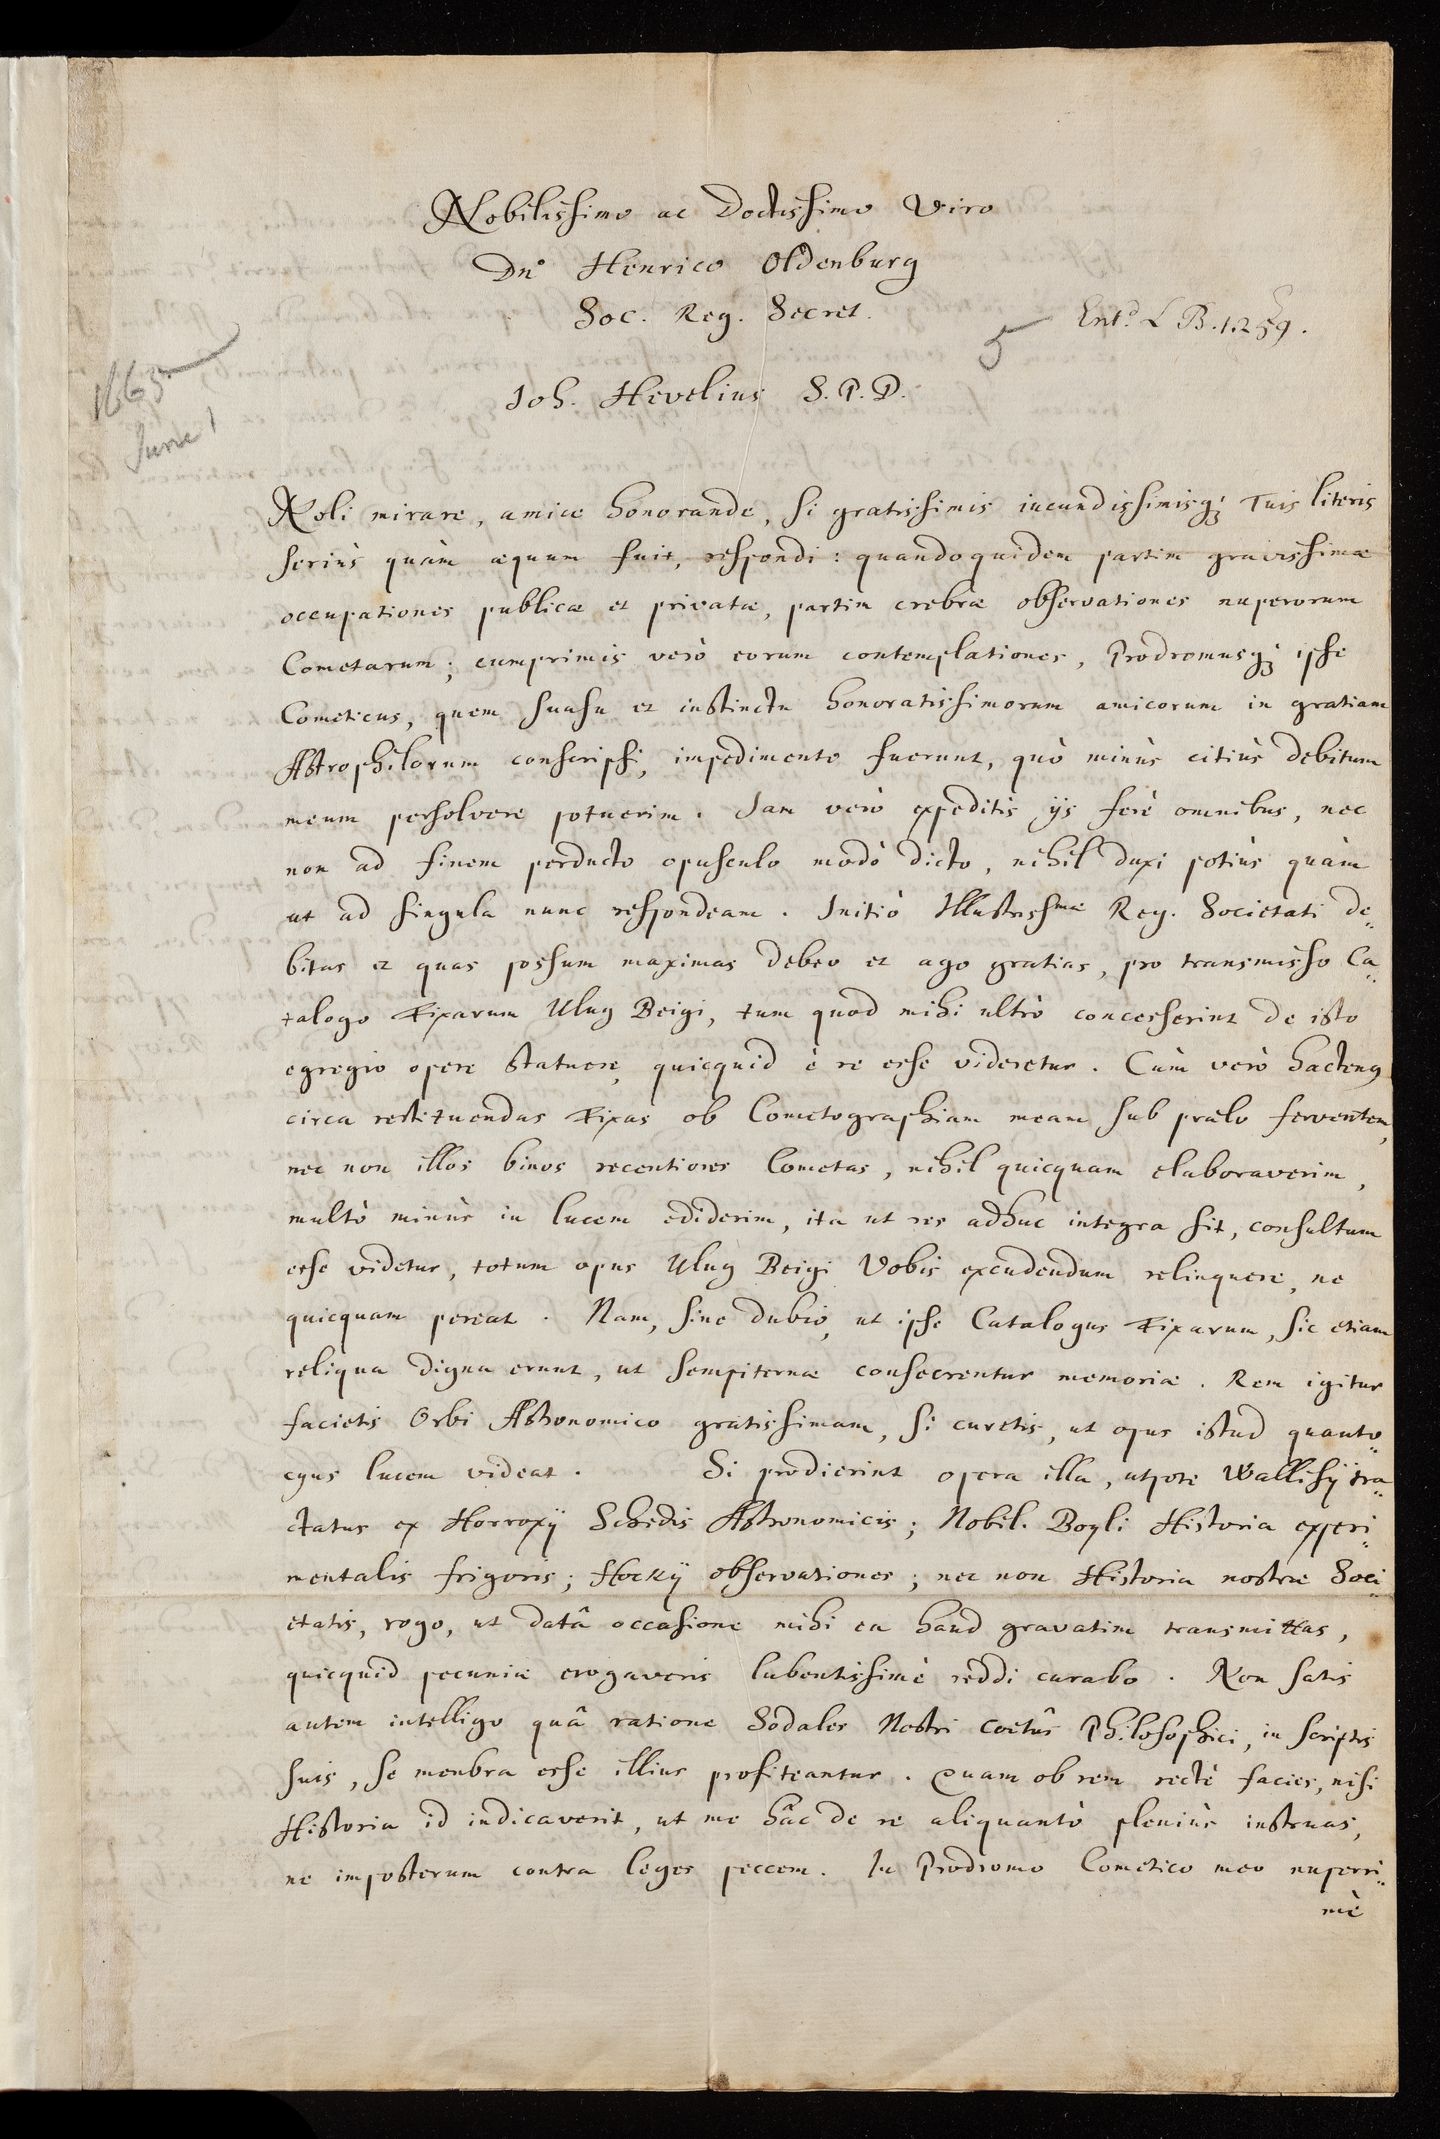 Nobilissimo ac Doctissimo Viro
Dn.º Henrico Oldenburg
Soc. Reg. Secret.
Ent.d L B.1.259.
5
Joh. Hevelius S. P. D.
1665
June 1
Noli mirare, amice honorande, si gratissimis iucundissimisq; Tuis literis
seriùs quàm æquum fuit, respondi: quandoquidem partim gravissimæ
occupationes publicæ et privatæ, partim crebræ observationes nuperorum
Cometarum; cumprimis verò eorum contemplationes, Prodromusq; ipse
Cometicus, quem suasu et instinctu honoratissimorum amicorum in gratiam
Astrophilorum conscripsi, impedimento fuerunt, quò minùs citiùs debitum
meum persolvere potuerim. Jam verò expeditis ijs ferè omnibus, nec
non ad finem perducto opusculo modò dicto, nihil duxi potiùs quàm
ut ad singula nunc respondeam. Initiò Illustrissmæ Reg. Societati de=
bitas et quas possum maximas debeo et ago gratias, pro transmisso Ca=
talogo Fixarum Ulug Beigi, tum quod mihi ultrò concesserint de isto
egregio opere statuere, quicquid è re esse videretur. Cùm verò hactenq
circa restituendas Fixas ob Cometographiam meam sub prælo ferventem,
nec non illos binos recentiores Cometas, nihil quicquam elaboraverim,
multò minùs in lucem ediderim, ita ut res adhuc integra sit, consultum
esse videtur, totum opus Ulug Beigi Vobis excudendum relinquere, ne
quicquam pereat. Nam, sine dubio, ut ipse Catalogus Fixarum, sic etiam
reliqua digna erunt, ut sempiternæ consecrentur memoriæ. Rem igitur
facietis Orbi Astronomico gratissimam, si curetis, ut opus istud quanto=
cyus lucem videat. Si prodierint opera illa, utpote Wallisÿ tra=
ctatus ex Horroxÿ Schedis Astronomicis; Nobil. Boyli Historia experi=
mentalis frigoris; Hockÿ observationes; nec non Historia nostræ Soci=
etatis, rogo, ut datâ occasione mihi ea haud gravatim transmittas,
quicquid pecuniæ erogaveris lubentissimè reddi curabo. Non satis
autem intelligo quâ ratione Sodales Nostri Coetûs Philosophici, in scriptis
suis, se menbra esse illius profiteantur. Quam ob rem rectè facies, nisi
Historia id indicaverit, ut me hâc de re aliquantò pleniùs instruas,
ne imposterum contra leges peccem. In Prodromo Cometico meo nuperri=
mè